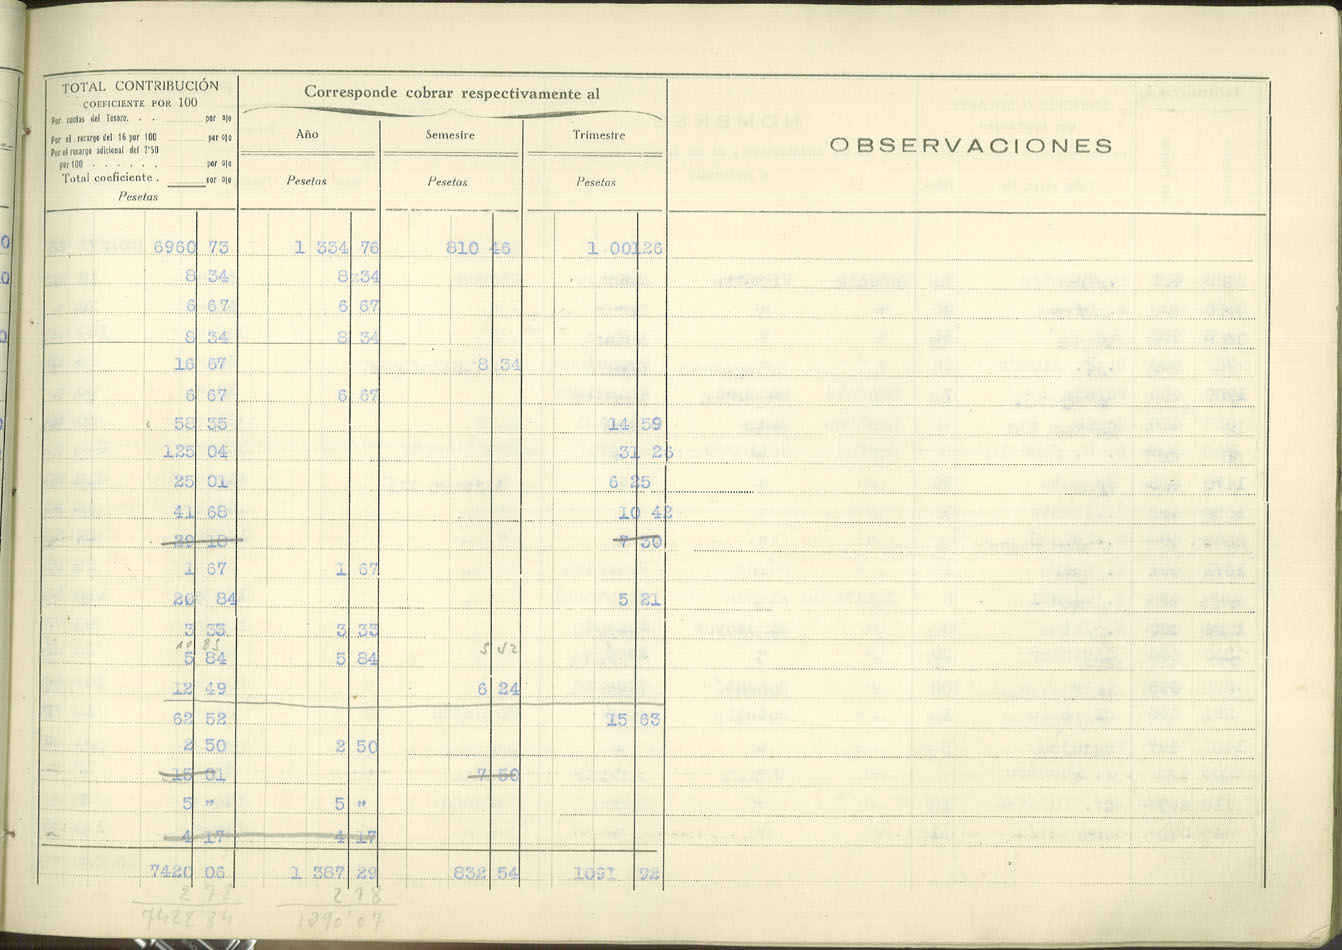 TOTAL CONTRIBUCIÓN
COEFICIENTE POR 100
Por cuotas del Tesoro. . . por o|o
Por el recargo del 16 por 100 por o|o
Por el recargo adicional del 7'50
por 100 . . . . . . por o|o
Total coeficiente . por o|o
Pesetas
Corresponde cobrar respectivamente al
Año Semestre Trimestre
Pesetas Pesetas Pesetas
OBSERVACIONES
6960 73 1 334 76 810 46 1 001 26
8 34 8 34
6 67 6 67
8 34 8 34
16 67 8 34
6 67 6 67
58 35 14 59
125 04 31 26
25 01 6 25
41 68 10 42
39 18 7 30
1 67 1 67
20 84 5 21
3 33 3 33
10 85 5 42
5 84 5 84
12 49 6 24
62 52 15 63
2 50 2 50
15 01 7 50
5 " 5 "
4 17 4 17
7420 06 1 387 29 832 54 1091 92
2 78 2 78
7422'84 1390'07